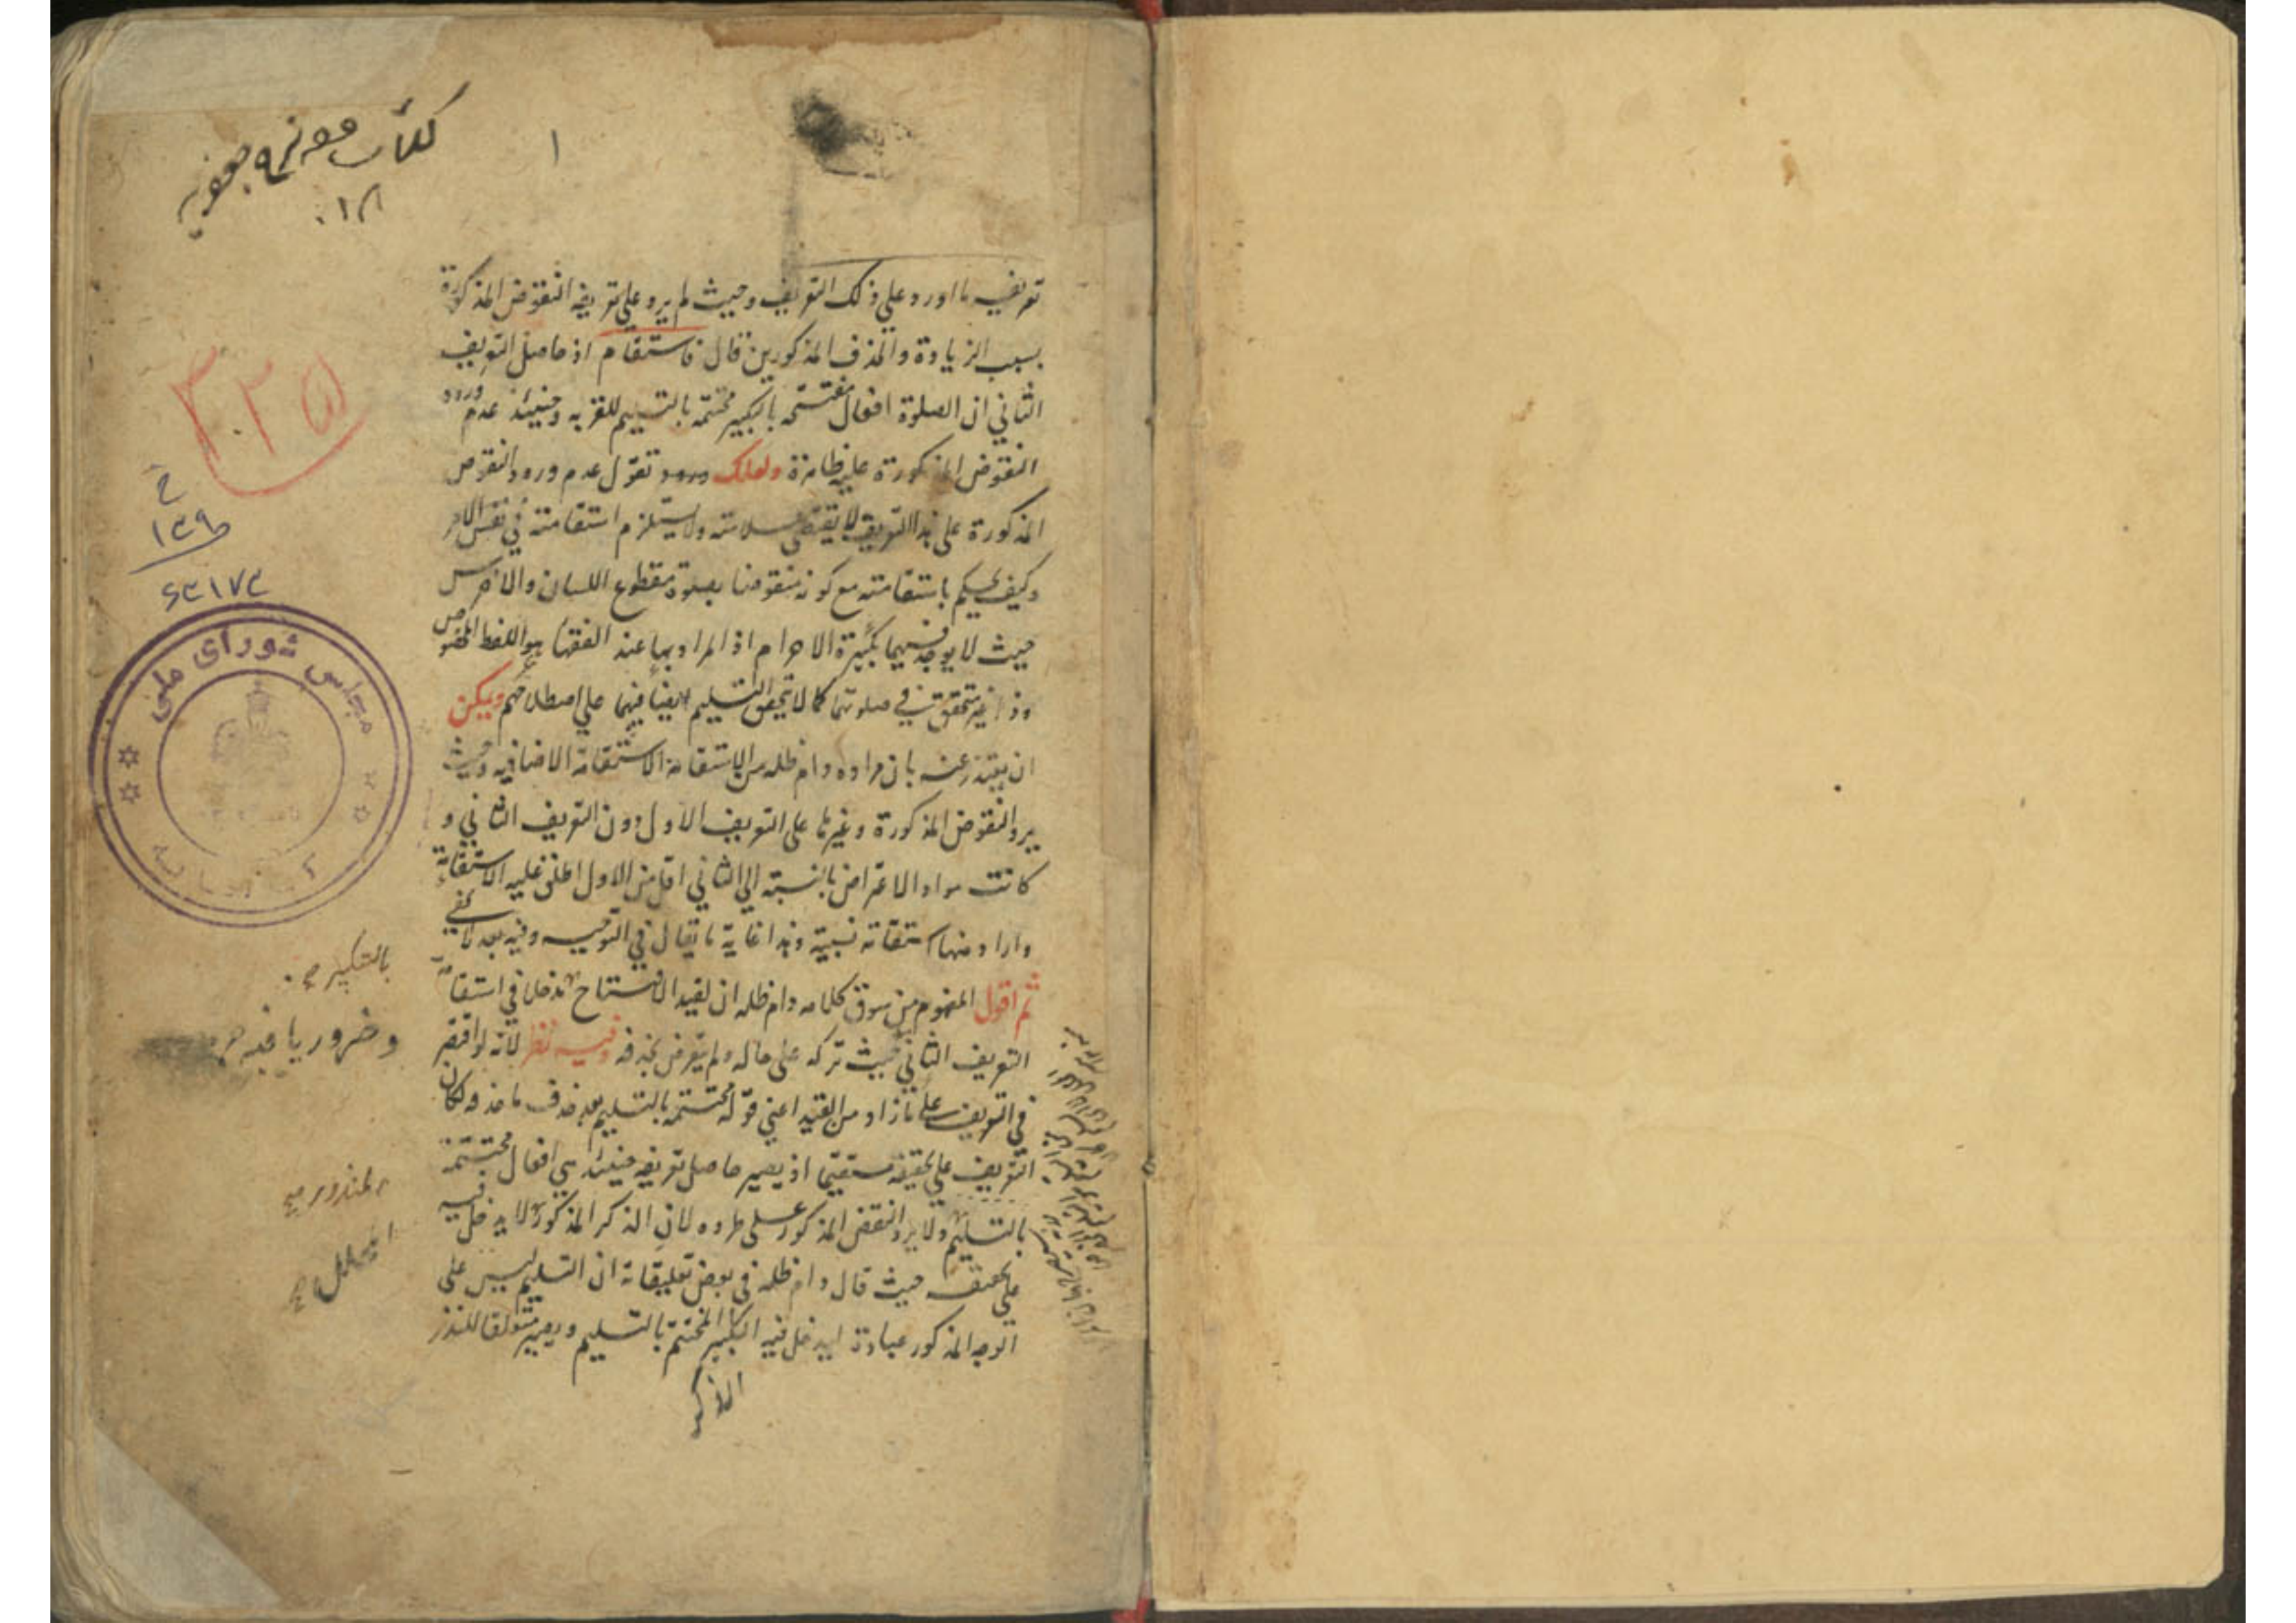 ١
تعريفه ما اورد على ذلك التعريف وحيث لم يرد على تعريفه النقوض المذكورة
بسبب الزيادة والحذف المذكورين قال فاستقام اذ حاصل التعريف
الثاني ان الصلوة افعال مفتتحة بالتكبير مختتمة بالتسليم للقربة وحينئذ عدم ورود
النقوض المذكورة عليه ظاهرة ولعلك تقول عدم ورود النقوض
المذكورة على هذا التعريف لا يقتضى سلامته ولا يستلزم استقامته في نفس الامر
وكيف يحكم باستقامته مع كونه منقوضا بصلوة مقطوع اللسان والاخرس
حيث لا يوجد فيهما تكبيرة الاحرام اذ المراد بها عند الفقهاء هو اللفظ المخصوص
وذا غير متحقق في صلوتهما كما لا يتحقق التسليم ايضا فيهما على اصطلاحهم ويمكن
ان يعتذر عنه بان مراده دام ظله من الاستقامة الاستقامة الاضافيه وحيث
يرد النقوض المذكورة وغيرها على التعريف الاول دون التعريف الثاني و
كانت مواد الاعتراض بالنسبة الى الثاني اقل من الاول اطلق عليه الاستقامة
واراد منها استقامة نسبية وهذا غاية ما يقال في التوجيه وفيه بعد لا يخفى
ثم اقول المفهوم من سوق كلامه دام ظله ان لقيد الافتتاح مدخلا في استقامة
التعريف الثاني حيث تركه على حاله ولم يتعرض بحذفه وفيه نظر لانه لو اقتصر
في التعريف على ما زاد من القيد اعني قوله مختتمة بالتسليم بعد حذف ما حذفه لكان
التعريف على تحقيقه مستقيما اذ يصير حاصل تعريفه حينئذ هي افعال مختتمة
بالتسليم ولا يرد النقض المذكور على طرده لان الذكر المذكور لا يدخل فيه
على تحقيقه حيث قال دام ظله في بعض تعليقاته ان التسليم ليس على
الوجه المذكور عبادة ليدخل فيه التكبير المختتم بالتسليم ويصير متعلقا للنذر
الذكر
٣٠٢٥
١٣٩
٦٣١٧٣
مجلس شورای ملی
بالتكبير صح
المنذور صح